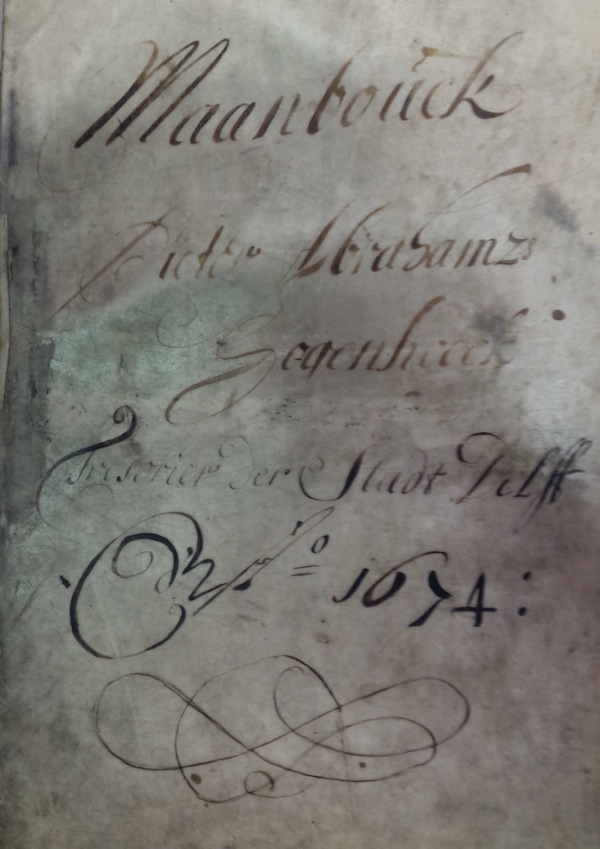 Maanboúck
Pieter Abrahamz:
Segenhoeck
Tresorier der Stadt Delft
A.º 1674: